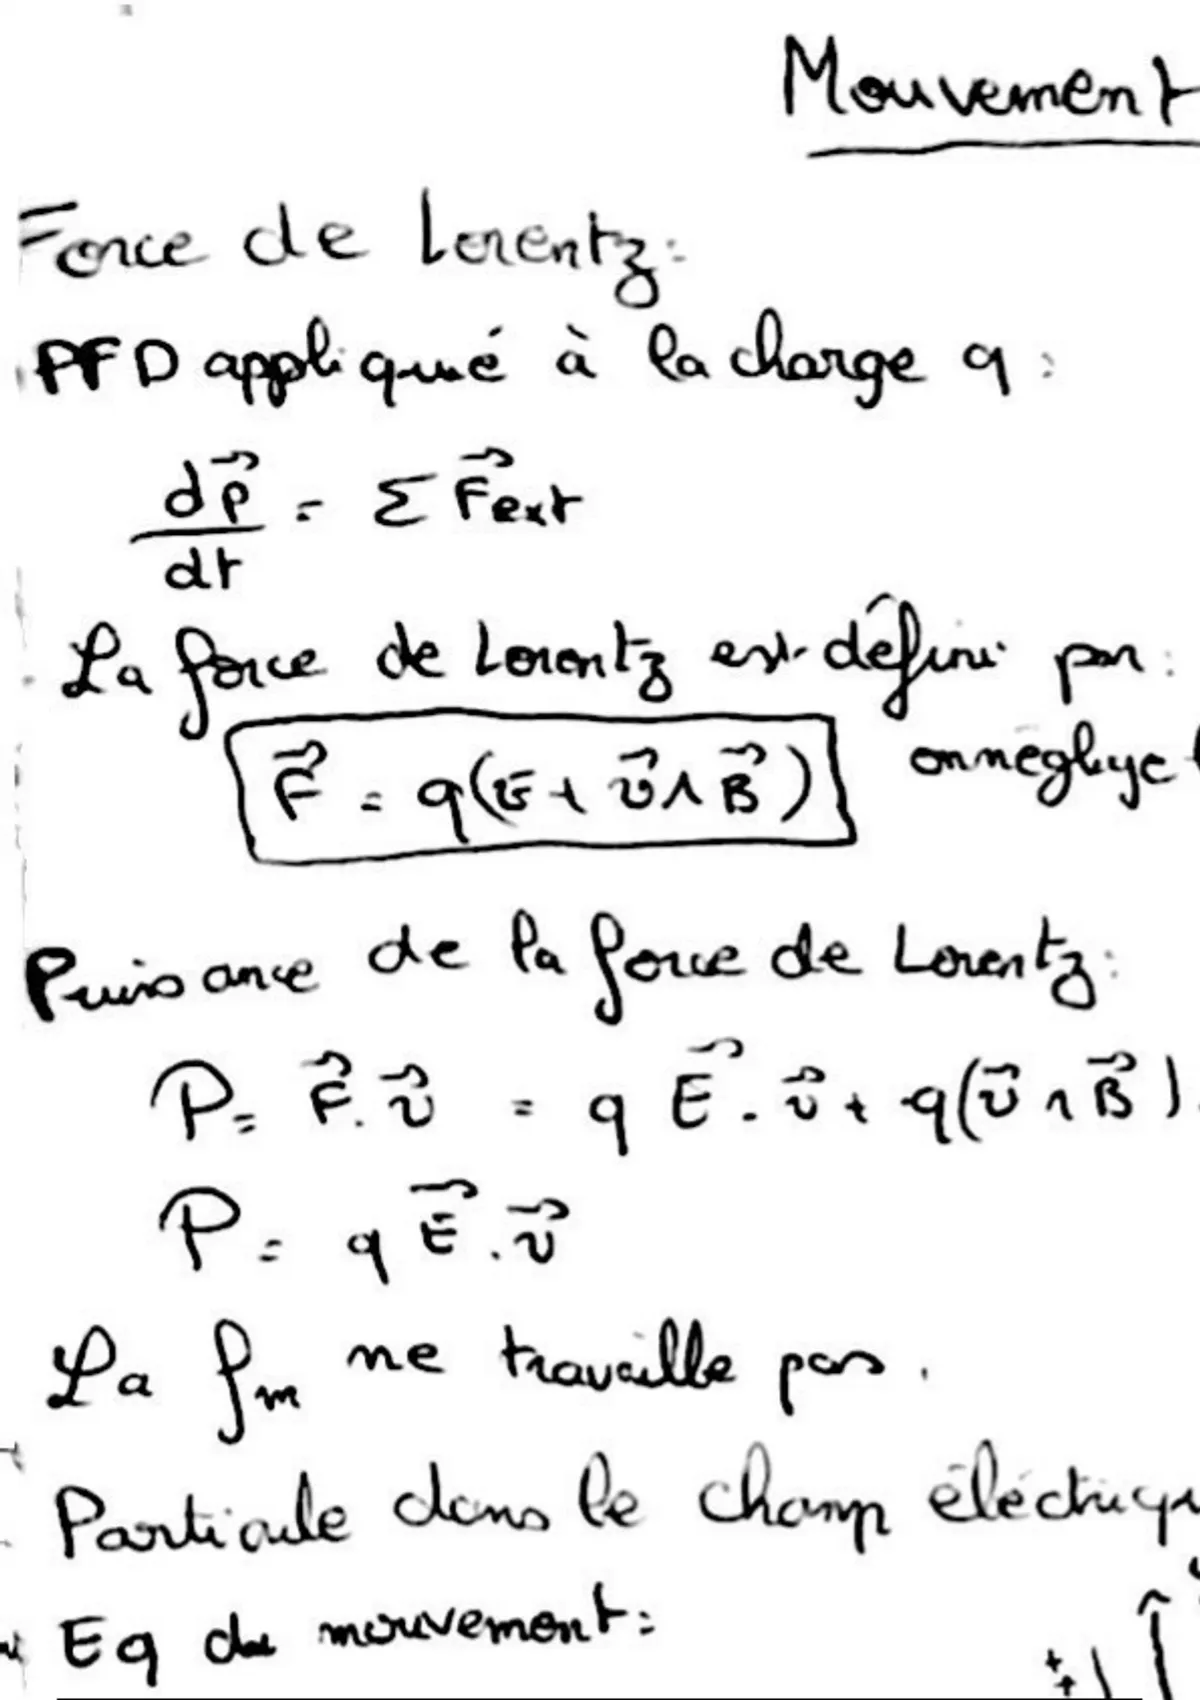 Mouvement
Force de Lorentz:
PFD appliqué à la charge q:
d\vec{p}/dt = Σ \vec{F}ext
La force de Lorentz est défini par:
\vec{F} = q(E + \vec{v} ∧ \vec{B})
on néglige
Puissance de la force de Lorentz:
P = \vec{F}.\vec{v} = q \vec{E}.\vec{v} + q(\vec{v} ∧ \vec{B}).
P = q \vec{E}.\vec{v}
La fm ne travaille pas.
Particule dans le champ électriqu
Eq du mouvement:
++